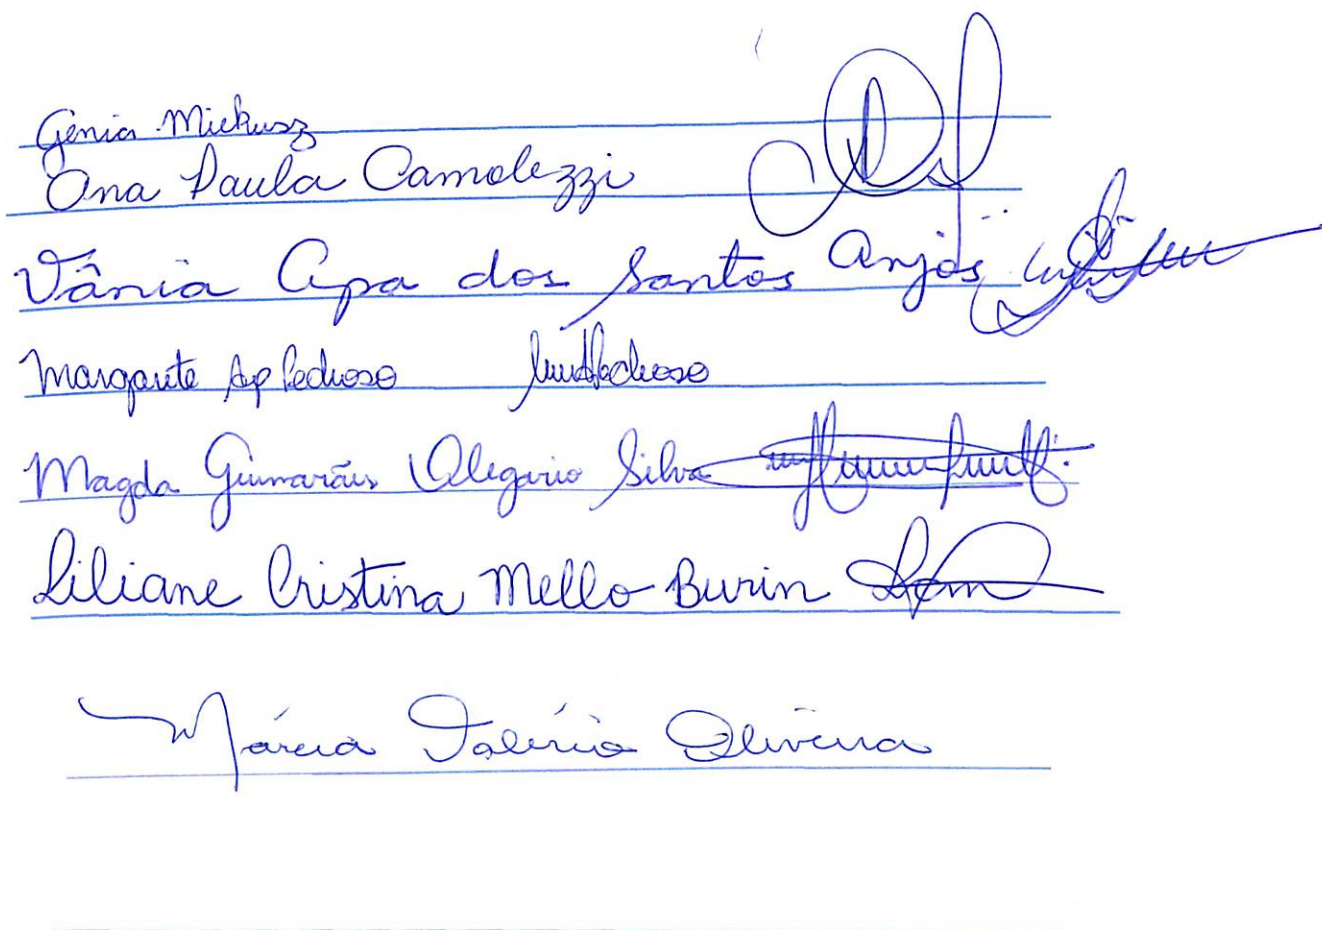 Gênia Mickusz
Ana Paula Camolezzi
Vânia Apa dos Santos Anjos
Margarete Ap Pedroso
Magda Guimarães Olegario Silva
Liliane Cristina Mello Burin
Márcia Valéria Oliveira